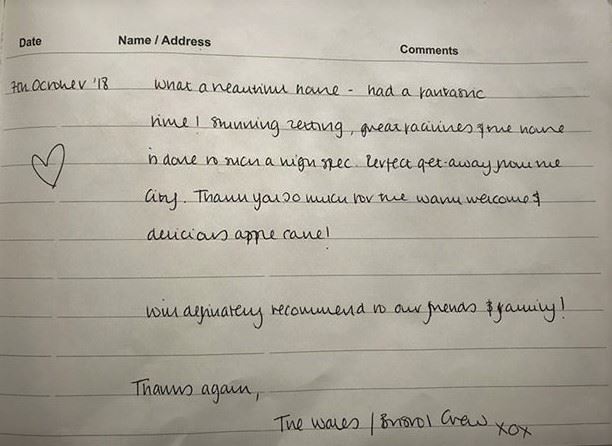 Date Name / Address Comments
7th October '18 What a beautiful home - had a fantastic
time! Stunning setting, great facilities & the home
is done to such a high spec. Perfect get-away from the
City. Thank you so much for the warm welcome &
delicious apple cake!
Will definately recommend to our friends & family!
Thanks again,
The Wales / Bristol Crew xox